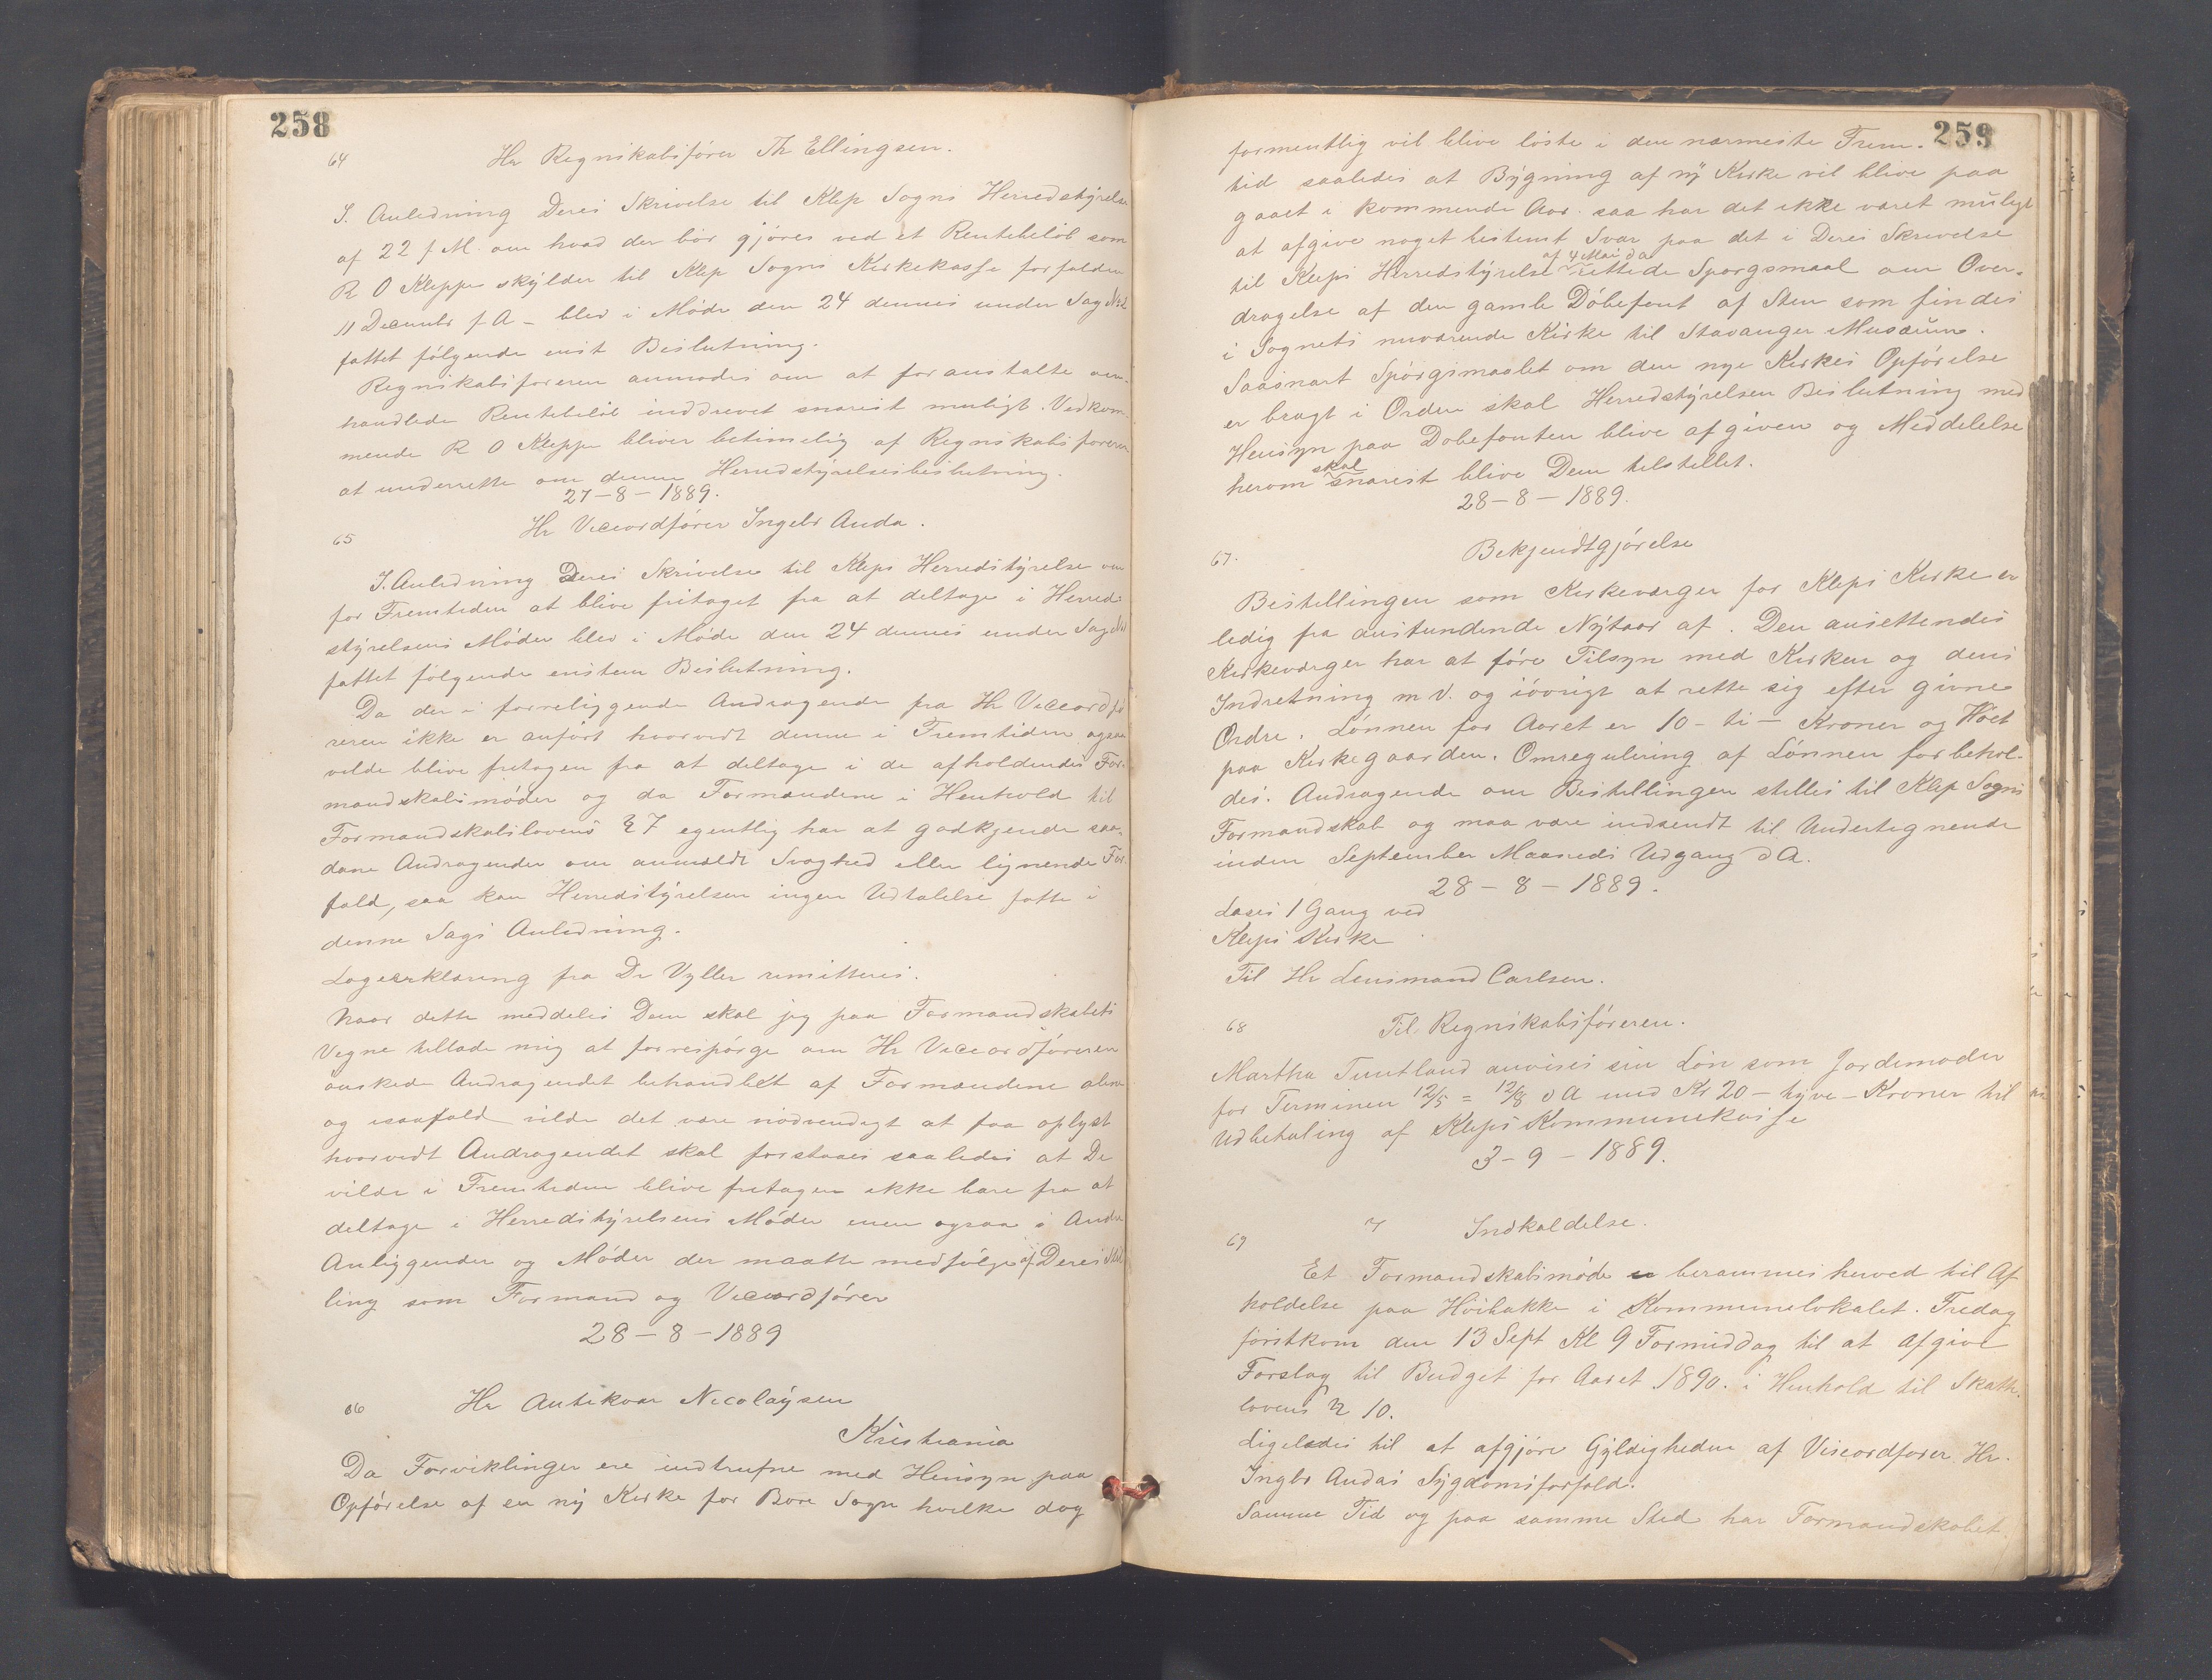 258
64 Hr Regnskabsfører Th Ellingsen.
I. Anledning Deres Skrivelse til Klep Sogns Herredstyrelse
af 22 f. M. om hvad der bør gjøres ved et Rentebeløb som
R O Kleppe skylder til Klep Sogns Kirkekasse forfalden
11 December f. A – blev i Møde den 24 dennes under Sag
fattet følgende enst Beslutning.
Regnskabsføreren anmodes om at foranstalte om-
handlede Rentebeløb inddrevet snarest muligt. Vedkom-
mende R O Kleppe bliver betimelig af Regnskabsføreren
at underrette om denne Herredstyrelsesbeslutning.
27–8–1889.
65 Hr Viceordfører Ingebr Anda.
I. Anledning Deres Skrivelse til Kleps Herredstyrelse om
for Fremtiden at blive fritaget fra at deltage i Herred-
styrelsens Møder blev i Møde den 24 dennes under Sag
fattet følgende enstem Beslutning.
Da der i foreliggende Andragende fra Hr Viceordfø
reren ikke er anført hvorvidt denne i Fremtiden ogsaa
vilde blive fritagen fra at deltage i de afholdendes For-
mandskabsmøder og da Formændene i Henhold til
Formandskabslovens § 7 egentlig har at godkjende saa-
dane Andragender om anmeldt Svaghed eller lignende For-
fald, saa kan Herredstyrelsen ingen Udtalelse fatte i
denne Sags Anledning.
Lægeerklæring fra Dr Vyller remitteres.
Naar dette meddeles Dem skal jeg paa Formandskabets
Vegne tillade mig at forespørge om Hr Viceordføreren
ønsker Andragendet behandlet af Formændene alene
og isaafald vilde det være nødvendigt at faa oplyst
hvorvidt Andragendet skal forstaaes saaledes at De
vilde i Fremtiden blive fritagen ikke bare fra at
deltage i Herredstyrelsens Møder men ogsaa i Andre
Anliggender og Møder der maatte medfølge af Deres Stil
ling som Formand og Viceordfører
28–8–1889
66 Hr Antikvar Nicolaysen
Kristiania
Da Forviklinger ere indtrufne med Hensyn paa
Opførelse af en ny Kirke for Bore Sogn hvilke dog
259
formentlig vil blive løste i den nærmeste Frem-
tid saaledes at Bygning af ny Kirke vil blive paa
gaaet i kommende Aar. saa har det ikke været muligt
at afgive noget bestemt Svar paa det i Deres Skrivelse
af 4 Mai d a
til Kleps Herredstyrelse rettede Spørgsmaal om Over-
dragelse af den gamle Døbefont af Sten som findes
i Sognets nuværende Kirke til Stavanger Musæum.
Saasnart Spørgsmaalet om den nye Kirkes Opførelse
er bragt i Orden skal Herredstyrelsen Beslutning med
Hensyn paa Døbefonten blive afgiven og Meddelelse
skal
herom snarest blive Dem tilstillet.
28–8–1889.
67. Bekjendtgjørelse
Bestillingen som Kirkeværger for Kleps Kirke er
ledig fra anstundende Nytaar af. Den ansettendes
Kirkeværger har at føre Tilsyn med Kirken og dens
Indretning m v. og iøvrigt at rette sig efter givne
Ordre. Lønnen for Aaret er 10 – ti – Kroner og Høet
paa Kirkegaarden. Omregulering af Lønnen forbehol-
des. Andragende om Bestillingen stilles til Klep Sogns
Formandskab og maa være indsendt til Undertegnende
inden September Maaneds Udgang d A.
28–8–1889.
Læses 1 Gang ved
Kleps Kirke
Til Hr Lensmand Carlsen.
68 Til Regnskabsføreren.
Martha Tuntland anvises sin Løn som Jordemoder
for Terminen 12/5 = 12/8 d A med Kr 20 – tyve – Kroner til
Udbetaling af Kleps Kommunekasse
3–9–1889.
69 Indkaldelse.
Et Formandskabsmøde berammes herved til Af
holdelse paa Høibakke i Kommunelokalet. Fredag
førstkom den 13 Sept Kl 9 Formiddag til at afgive
Forslag til Budget for Aaret 1890. i Henhold til Skatte
lovens § 10.
Ligeledes til at afgjøre Gyldigheden af Viseordfører Hr.
Ingbr Andas Sygdomsforfald.
Samme Tid og paa samme Sted har Formandskabet